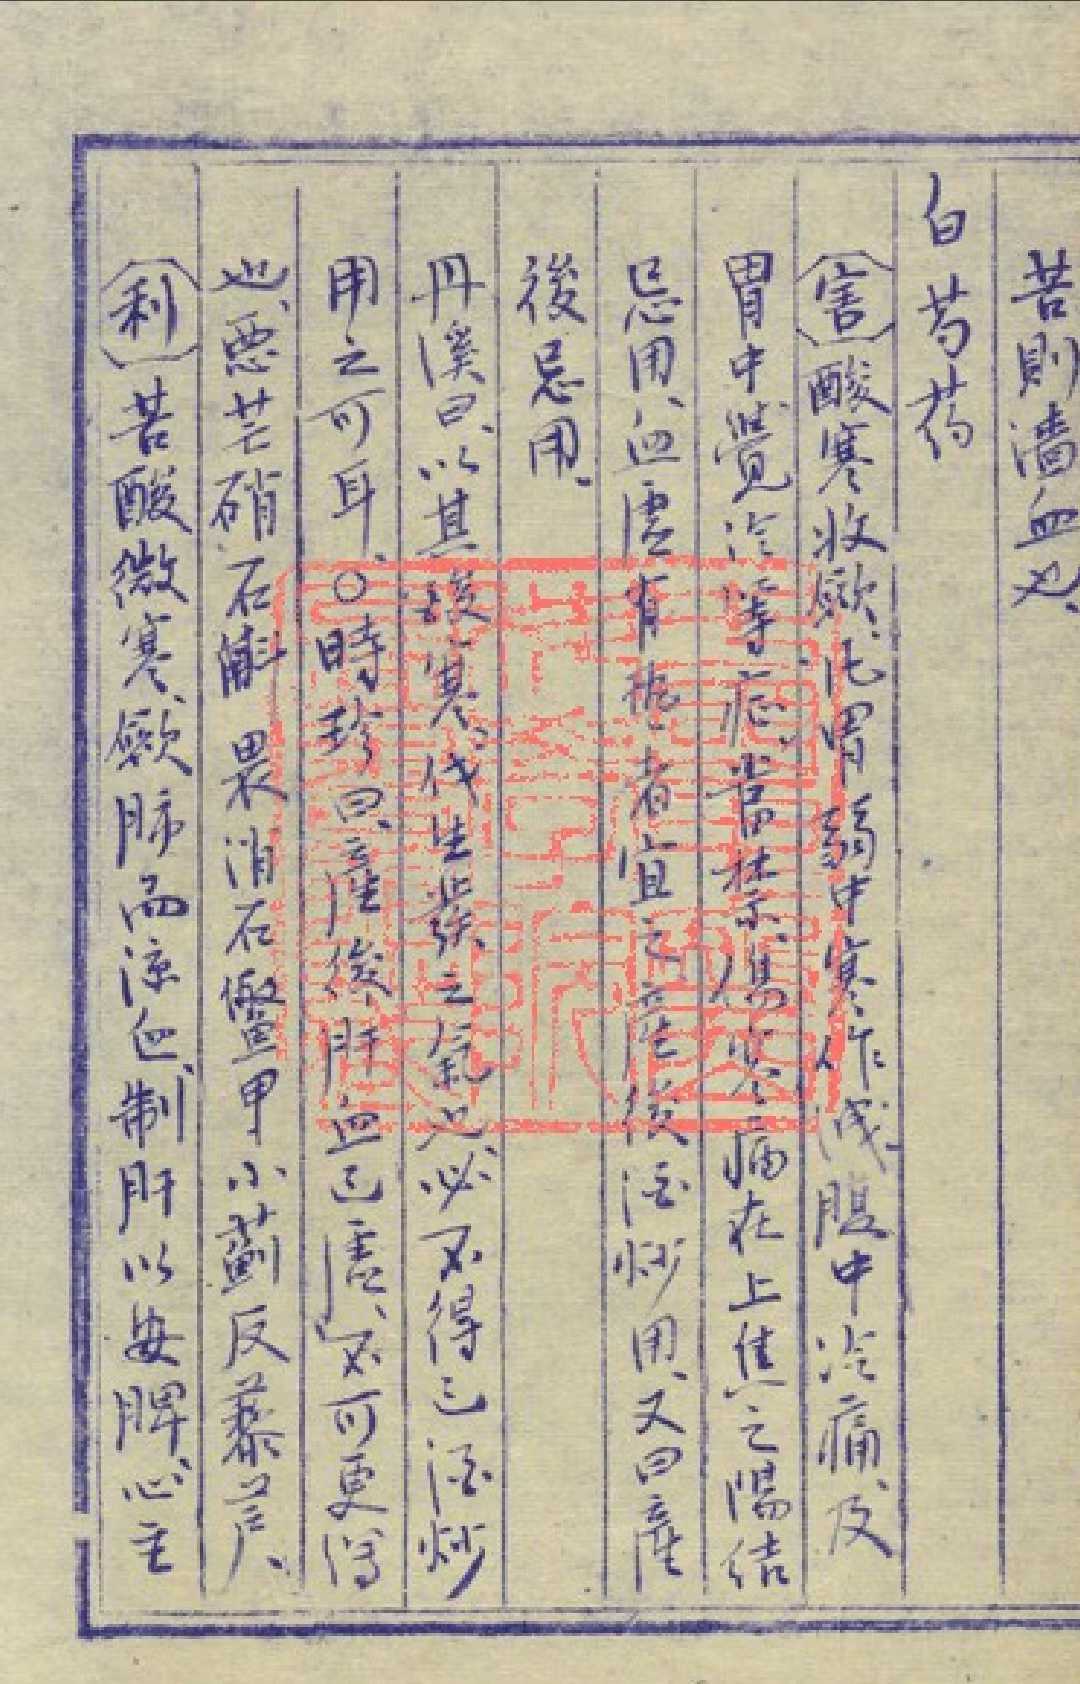 苦則濇血也、
白芍药
害酸寒收斂、凡胃弱中寒作泄腹中冷痛、及
胃中覺冷等症、當禁、傷寒病在上焦之陽结
忌用、血虛有熱者宜之、産後酒炒用、又曰産
後忌用、
丹溪曰、以其酸寒、伐生發之氣也、必不得已酒炒
用之可耳、○時珍曰、産後肝血已虛、不可更瀉
也、惡芒硝石斛 畏消石鱉甲小薊反藜芦、
利苦酸微寒、斂肺而涼血、制肝以安脾、心主